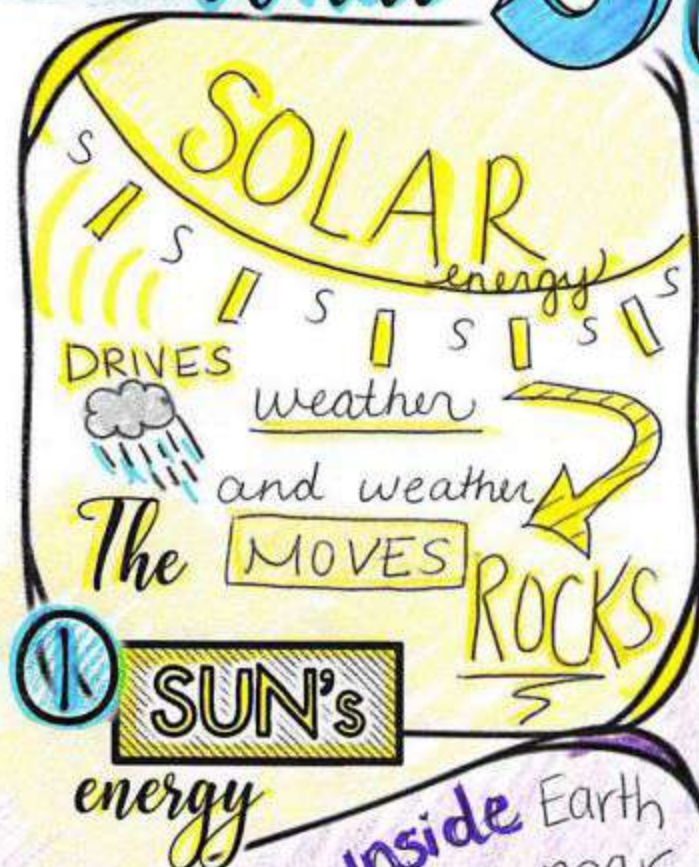 SOLAR
energy
S S S S S S
DRIVES
weather
and weather
MOVES
ROCKS
The
1
SUN's
energy
inside Earth